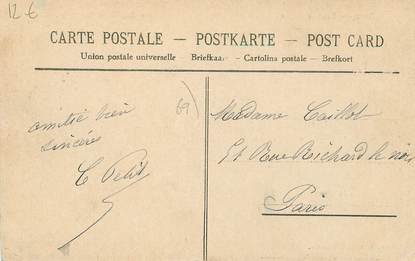 12 €
CARTE POSTALE — POSTKARTE — POST CARD
Union postale universelle Briefkaar - Cartolina postale — Brefkort
69
amitié bien
sincères
C Petit
Madame Caillot
51 Rue Richard le noir
Paris